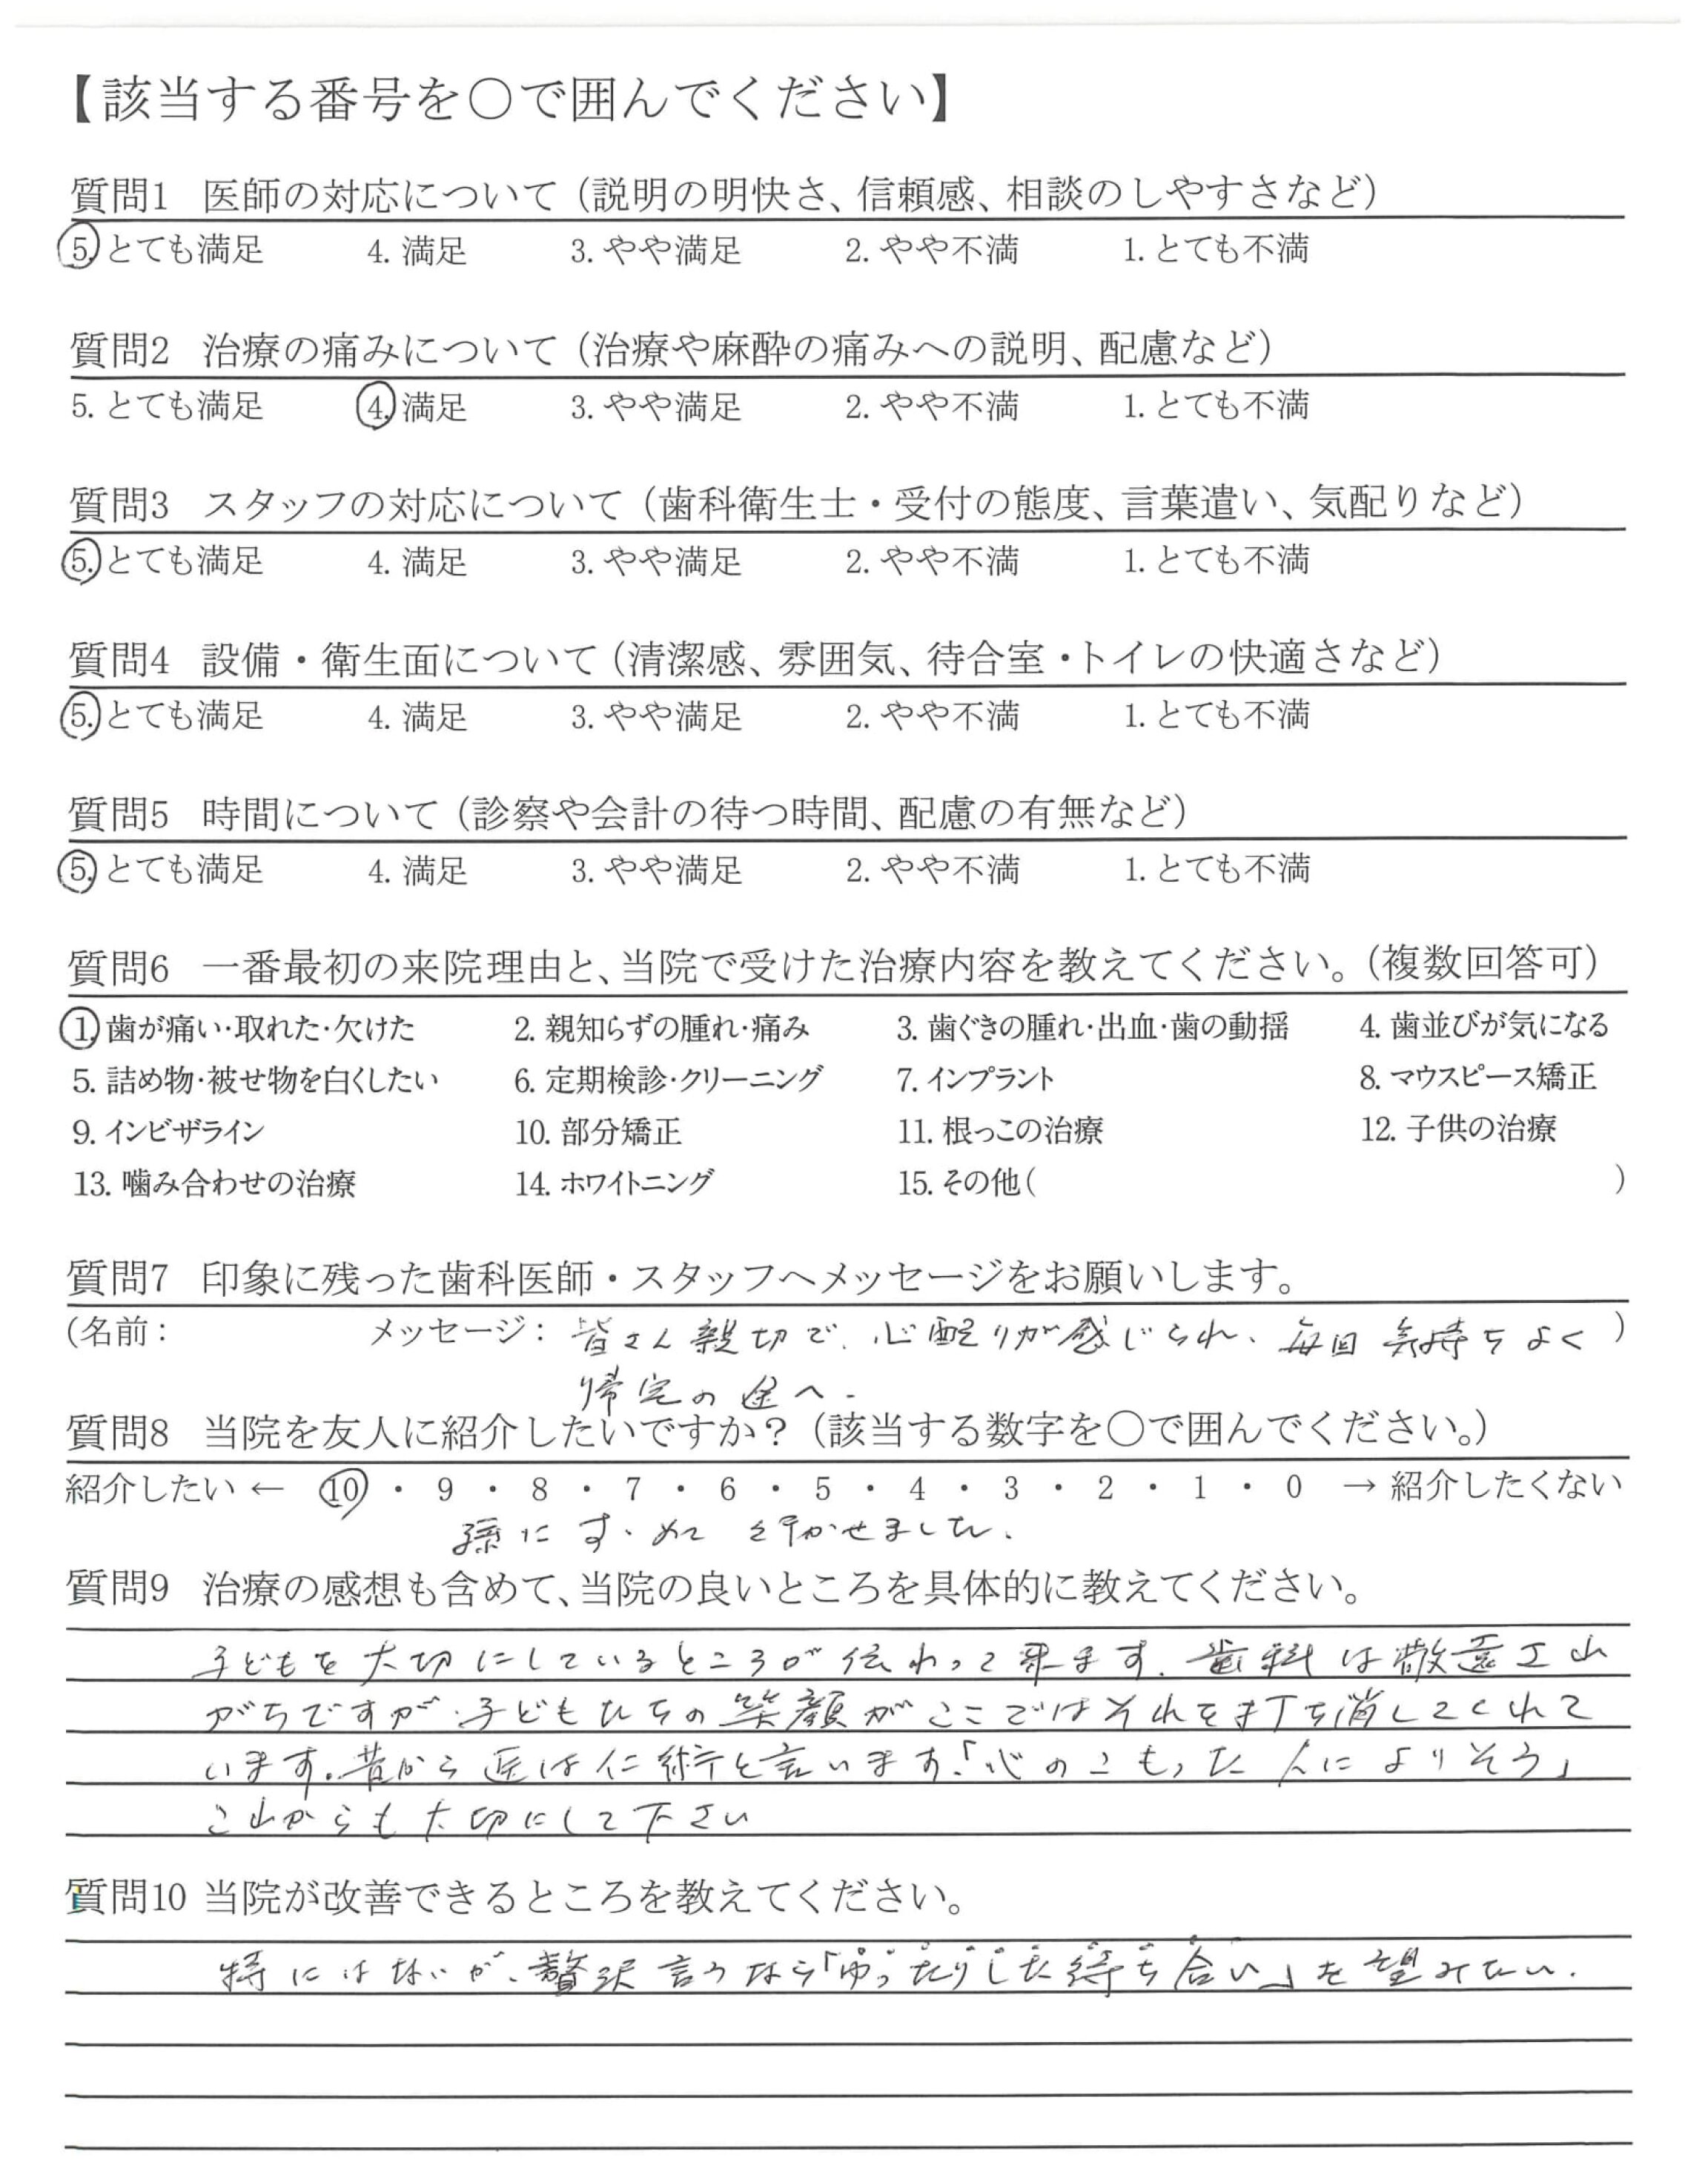 【該当する番号を〇で囲んでください】
質問1 医師の対応について（説明の明快さ、信頼感、相談のしやすさなど）
5. とても満足 4. 満足 3. やや満足 2. やや不満 1. とても不満
質問2 治療の痛みについて（治療や麻酔の痛みへの説明、配慮など）
5. とても満足 4. 満足 3. やや満足 2. やや不満 1. とても不満
質問3 スタッフの対応について（歯科衛生士・受付の態度、言葉遣い、気配りなど）
5. とても満足 4. 満足 3. やや満足 2. やや不満 1. とても不満
質問4 設備・衛生面について（清潔感、雰囲気、待合室・トイレの快適さなど）
5. とても満足 4. 満足 3. やや満足 2. やや不満 1. とても不満
質問5 時間について（診察や会計の待つ時間、配慮の有無など）
5. とても満足 4. 満足 3. やや満足 2. やや不満 1. とても不満
質問6 一番最初の来院理由と、当院で受けた治療内容を教えてください。（複数回答可）
1. 歯が痛い・取れた・欠けた 2. 親知らずの腫れ・痛み 3. 歯ぐきの腫れ・出血・歯の動揺 4. 歯並びが気になる
5. 詰め物・被せ物を白くしたい 6. 定期検診・クリーニング 7. インプラント 8. マウスピース矯正
9. インビザライン 10. 部分矯正 11. 根っこの治療 12. 子供の治療
13. 噛み合わせの治療 14. ホワイトニング 15. その他（ ）
質問7 印象に残った歯科医師・スタッフへメッセージをお願いします。
（名前： メッセージ： 皆さん親切で、心配りが感じられ、毎回 気持ちよく ）
帰宅の途へ.
質問8 当院を友人に紹介したいですか？（該当する数字を〇で囲んでください。）
紹介したい ← 10 ・ 9 ・ 8 ・ 7 ・ 6 ・ 5 ・ 4 ・ 3 ・ 2 ・ 1 ・ 0 → 紹介したくない
孫に すゝめて かせました.
質問9 治療の感想も含めて、当院の良いところを具体的に教えてください。
子どもを大切にしているところが伝わって来ます. 歯科は敬遠され
がちですが、子どもたちの笑顔がここではそれを打ち消してくれて
います。昔から医は仁術と言います「心のこもった 人に よりそう」
これからも大切にして下さい
質問10 当院が改善できるところを教えてください。
特にはないが、贅沢言うなら「ゆったりした待ち合い」を望みたい.